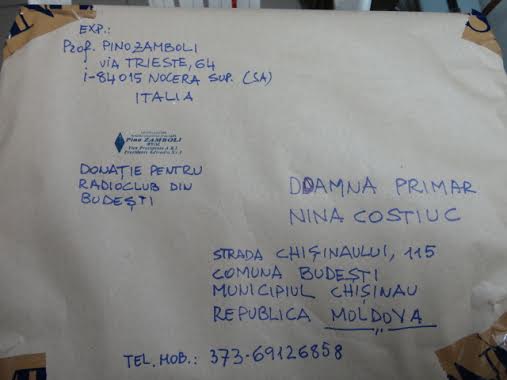 EXP.:
Prof. PINO ZAMBOLI
VIA TRIESTE, 64
I-84015 NOCERA SUP. (SA)
ITALIA
Pino ZAMBOLI
DONAȚIE PENTRU
RADIOCLUB DIN
BUDEȘTI
DOAMNA PRIMAR
NINA COSTIUC
STRADA CHIȘINAULUI, 115
COMUNA BUDEȘTI
MUNICIPIUL CHIȘINAU
REPUBLICA MOLDOVA
TEL. MOB.: 373-69126858